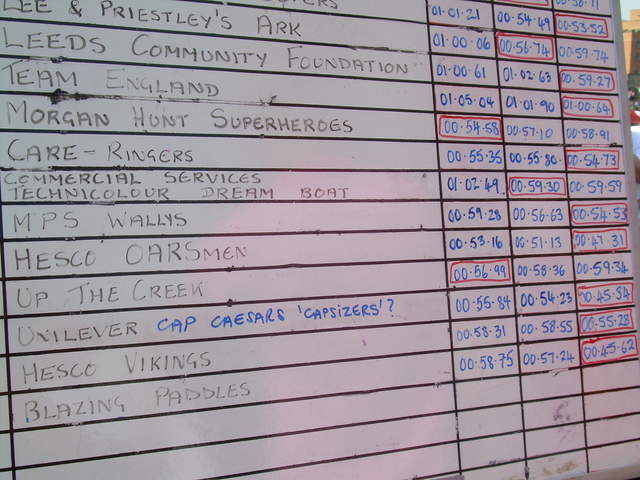 01.01.21 00.54.49 00.53.52
LEE & PRIESTLEY'S ARK 01.00.06 00.56.74 00.59.74
LEEDS COMMUNITY FOUNDATION 01.00.61 01.02.63 00.59.27
TEAM ENGLAND 01.05.04 01.01.90 01.00.64
MORGAN HUNT SUPERHEROES 00.54.58 00.57.10 00.58.91
CARE-RINGERS 00.55.35 00.55.80 00.54.73
COMMERCIAL SERVICES
TECHNICOLOUR DREAM BOAT 01.02.49 00.59.30 00.59.59
MPS WALLYS 00.59.28 00.56.63 00.54.53
HESCO OARSMEN 00.53.16 00.51.13 00.47.31
UP THE CREEK 00.56.99 00.58.36 00.59.34
UNILEVER CAP CAESARS 'CAPSIZERS'? 00.55.84 00.54.23 00.45.84
HESCO VIKINGS 00.58.31 00.58.55 00.55.28
BLAZING PADDLES 00.58.75 00.57.24 00.45.62